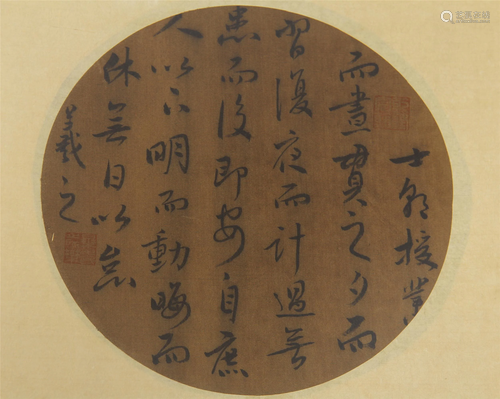 士朝授業
而晝貫之夕而
習復夜而計過無
患而後即安自庶
人以下明而動晦而
休無日以怠
羲之